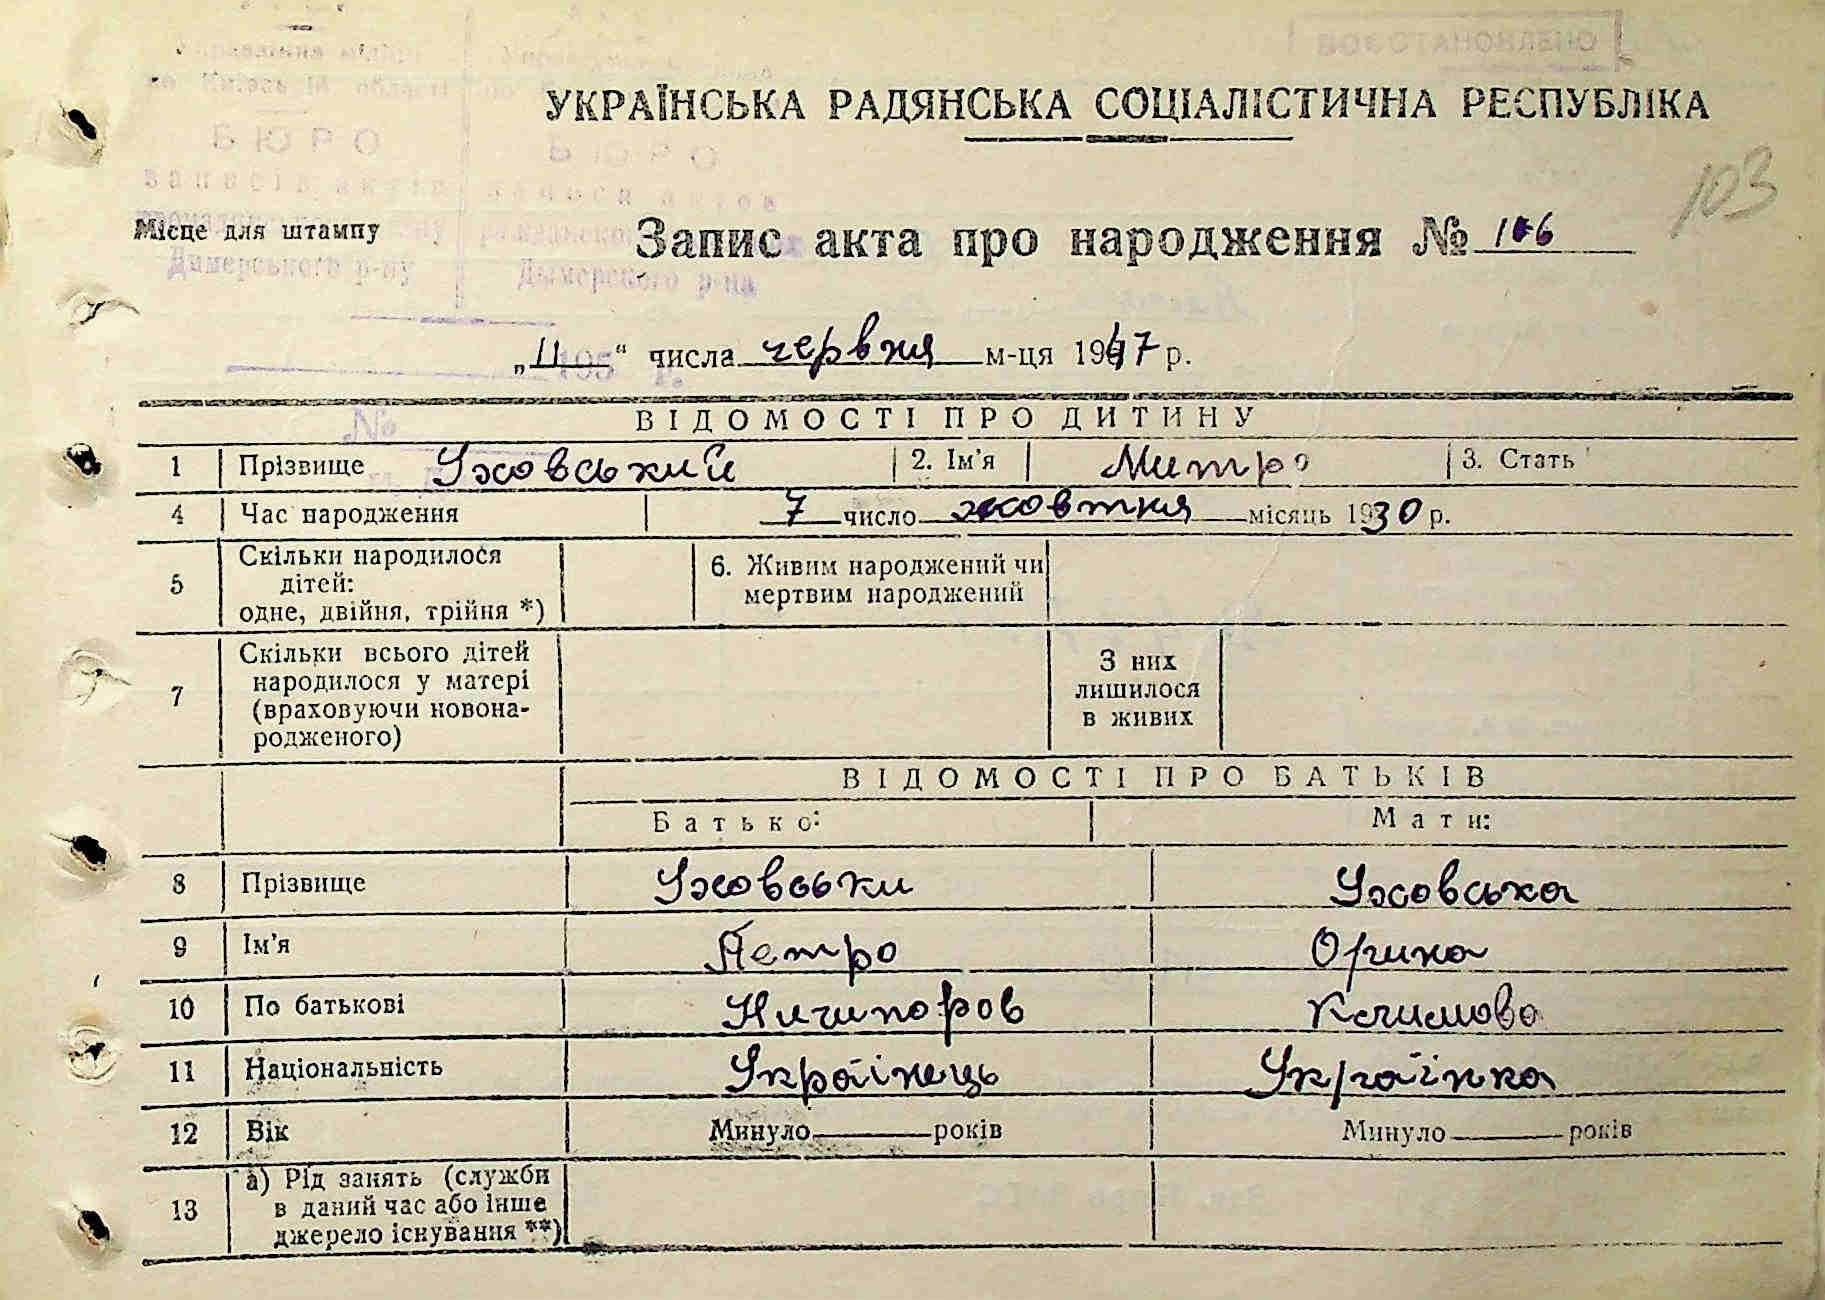 Управління міліції
по Київській області
БЮРО БЮРО
записів актів записи актов
громадянського стану гражданского
Димерського р-ну Дымерского р-на
УКРАЇНСЬКА РАДЯНСЬКА СОЦІАЛІСТИЧНА РЕСПУБЛІКА
103
Місце для штампу
Запис акта про народження № 106
„11“ числа червня м-ця 1947 р.
195 р.
№
ВІДОМОСТІ ПРО ДИТИНУ
1 Прізвище Ужовський 2. Ім'я Митро 3. Стать
4 Час народження 7 число жовтня місяць 1930 р.
5 Скільки народилося
дітей:
одне, двійня, трійня *)
6. Живим народжений чи
мертвим народжений
7 Скільки всього дітей
народилося у матері
(враховуючи новона-
родженого)
З них
лишилося
в живих
ВІДОМОСТІ ПРО БАТЬКІВ
Батько: Мати:
8 Прізвище Ужовськи Ужовська
9 Ім'я Петро Орина
10 По батькові Ничипоров
11 Національність Українець Українка
12 Вік Минуло років Минуло років
13 а) Рід занять (служби
в даний час або інше
джерело існування **)